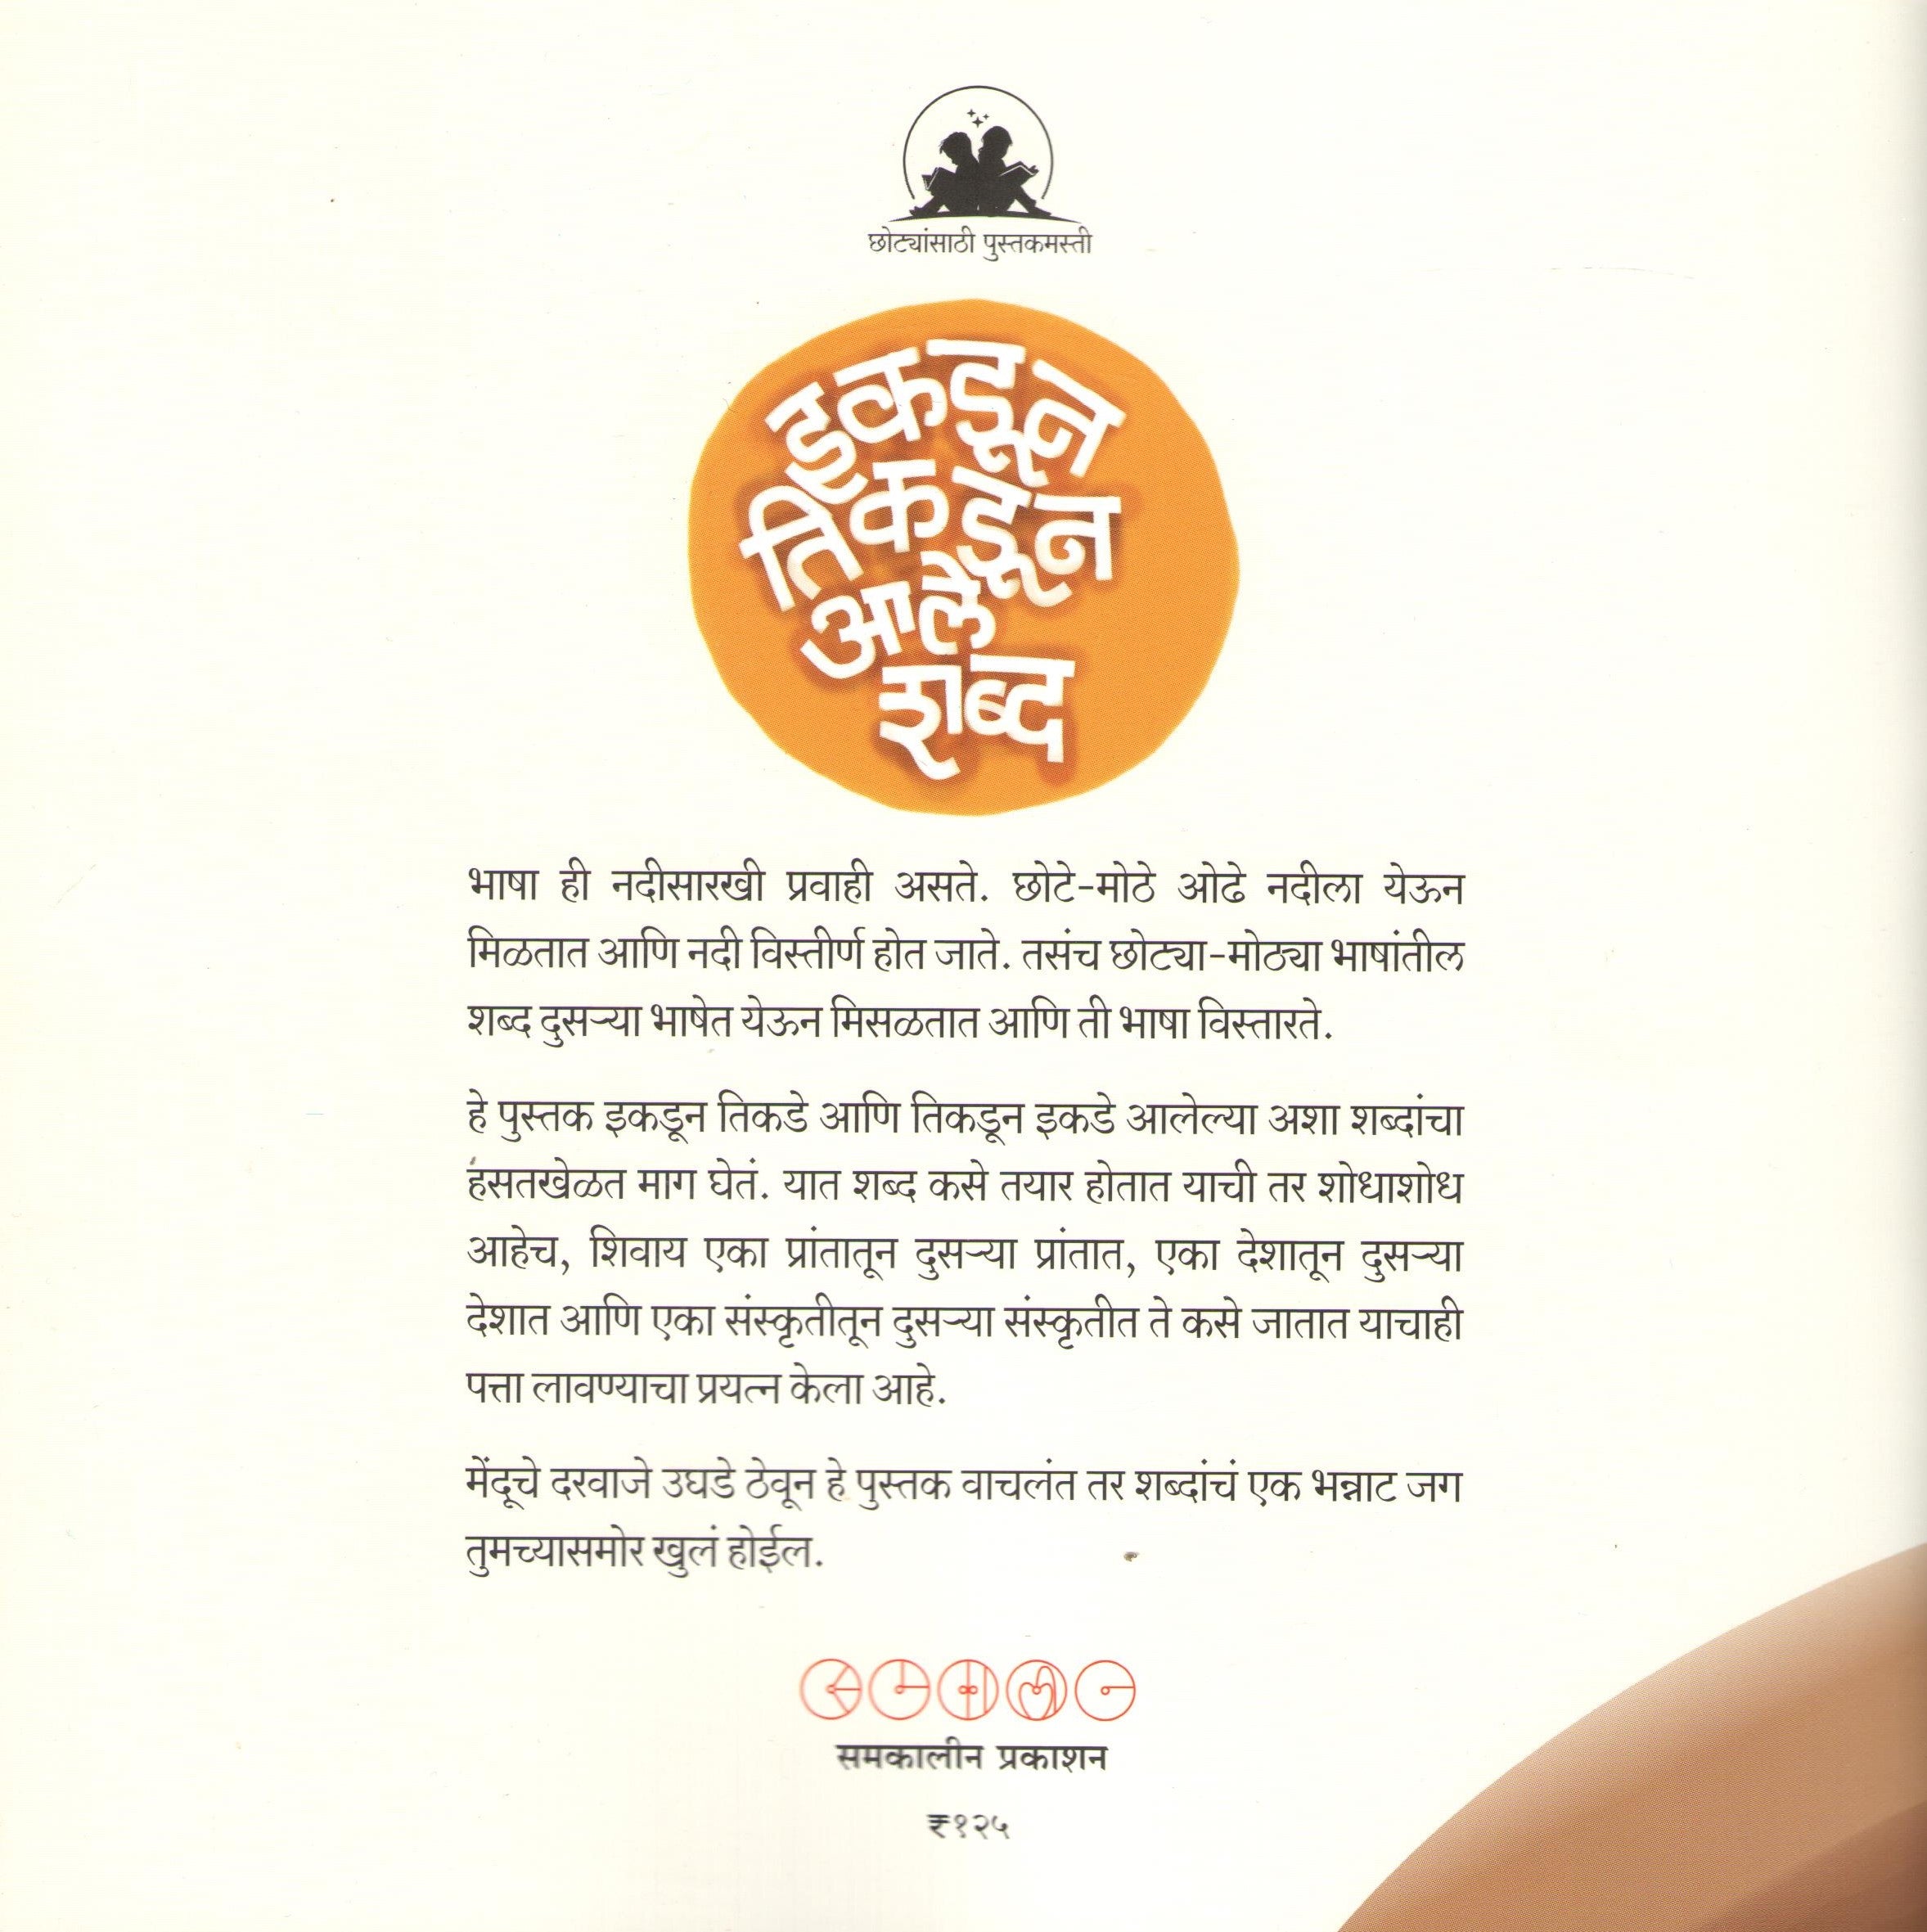 छोट्यांसाठी पुस्तकमस्ती
इकडून
तिकडून
आले
शब्द
भाषा ही नदीसारखी प्रवाही असते. छोटे-मोठे ओढे नदीला येऊन
मिळतात आणि नदी विस्तीर्ण होत जाते. तसंच छोट्या-मोठ्या भाषांतील
शब्द दुसऱ्या भाषेत येऊन मिसळतात आणि ती भाषा विस्तारते.
हे पुस्तक इकडून तिकडे आणि तिकडून इकडे आलेल्या अशा शब्दांचा
हसतखेळत माग घेतं. यात शब्द कसे तयार होतात याची तर शोधाशोध
आहेच, शिवाय एका प्रांतातून दुसऱ्या प्रांतात, एका देशातून दुसऱ्या
देशात आणि एका संस्कृतीतून दुसऱ्या संस्कृतीत ते कसे जातात याचाही
पत्ता लावण्याचा प्रयत्न केला आहे.
मेंदूचे दरवाजे उघडे ठेवून हे पुस्तक वाचलंत तर शब्दांचं एक भन्नाट जग
तुमच्यासमोर खुलं होईल.
समकालीन प्रकाशन
₹१२५